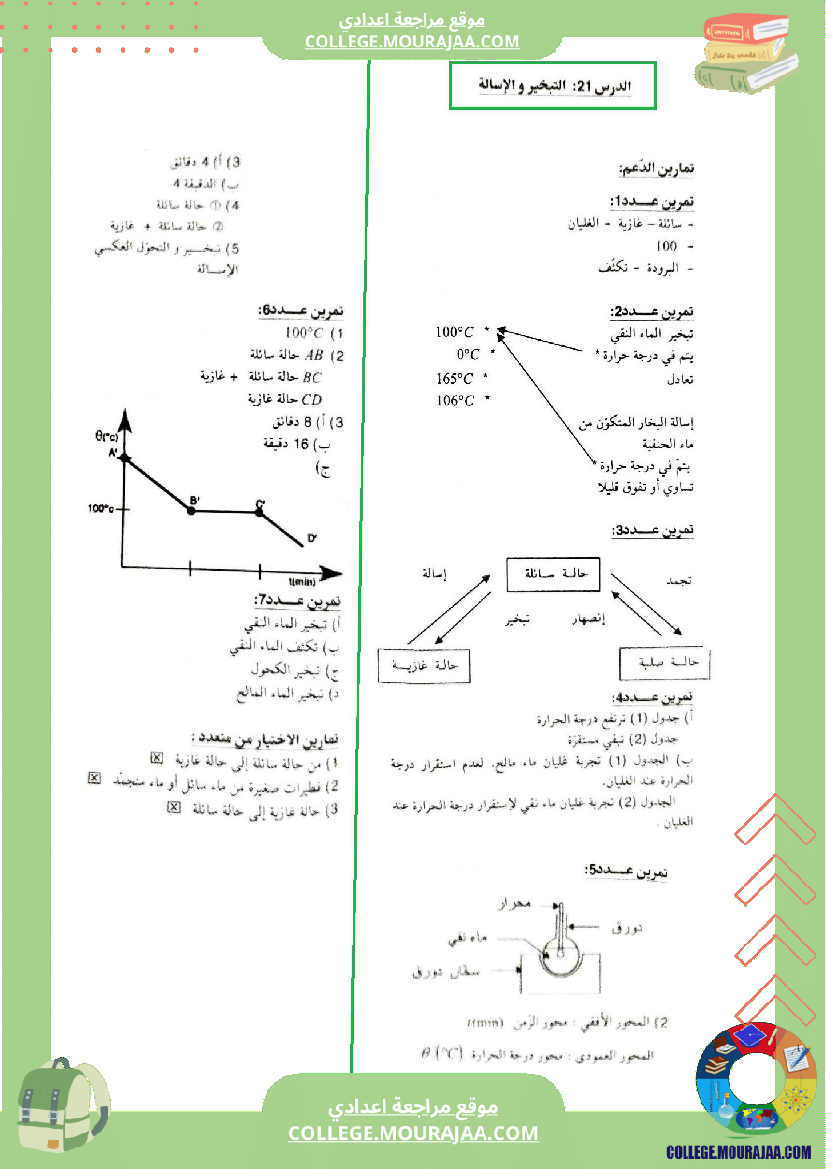 موقع مراجعة اعدادي
COLLEGE.MOURAJAA.COM
الدرس 21: التبخير و الإسالة
تمارين الدّعم:
تمرين عــدد1:
- سائلة – غازية - الغليان
- 100
- البرودة - تكثّف
تمرين عــدد2:
تبخير الماء النقي
يتم في درجة حرارة *
تعادل
* 100°C
* 0°C
* 165°C
* 106°C
إسالة البخار المتكوّن من
ماء الحنفية
يتمّ في درجة حرارة *
تساوي أو تفوق قليلا
تمرين عــدد3:
حالة سائلة
إسالة
تجمد
تبخير
إنصهار
حالة غازية
حالة صلبة
تمرين عــدد4:
أ) جدول (1) ترتفع درجة الحرارة
جدول (2) تبقى مستقرّة
ب) الجدول (1) تجربة غليان ماء مالح. لعدم استقرار درجة
الحرارة عند الغليان.
الجدول (2) تجربة غليان ماء نقي لإستقرار درجة الحرارة عند
الغليان .
تمرين عــدد5:
محرار
دورق
ماء نقي
سخّان دورق
2) المحور الأفقي : محور الزّمن t(min)
المحور العمودي : محور درجة الحرارة θ (°C)
3) أ) 4 دقائق
ب) الدقيقة 4
4) ① حالة سائلة
② حالة سائلة + غازية
5) تبخير و التحوّل العكسي
الإسالة
تمرين عــدد6:
1) 100°C
2) AB حالة سائلة
BC حالة سائلة + غازية
CD حالة غازية
3) أ) 8 دقائق
ب) 16 دقيقة
ج)
θ(°c)
A'
B'
C'
D'
100°c
t(min)
تمرين عــدد7:
أ) تبخير الماء النقي
ب) تكثف الماء النقي
ج) تبخير الكحول
د) تبخير الماء المالح
تمارين الاختيار من متعدد :
1) من حالة سائلة إلى حالة غازية ☒
2) قطيرات صغيرة من ماء سائل أو ماء متجمّد ☒
3) حالة غازية إلى حالة سائلة ☒
موقع مراجعة اعدادي
COLLEGE.MOURAJAA.COM
COLLEGE.MOURAJAA.COM